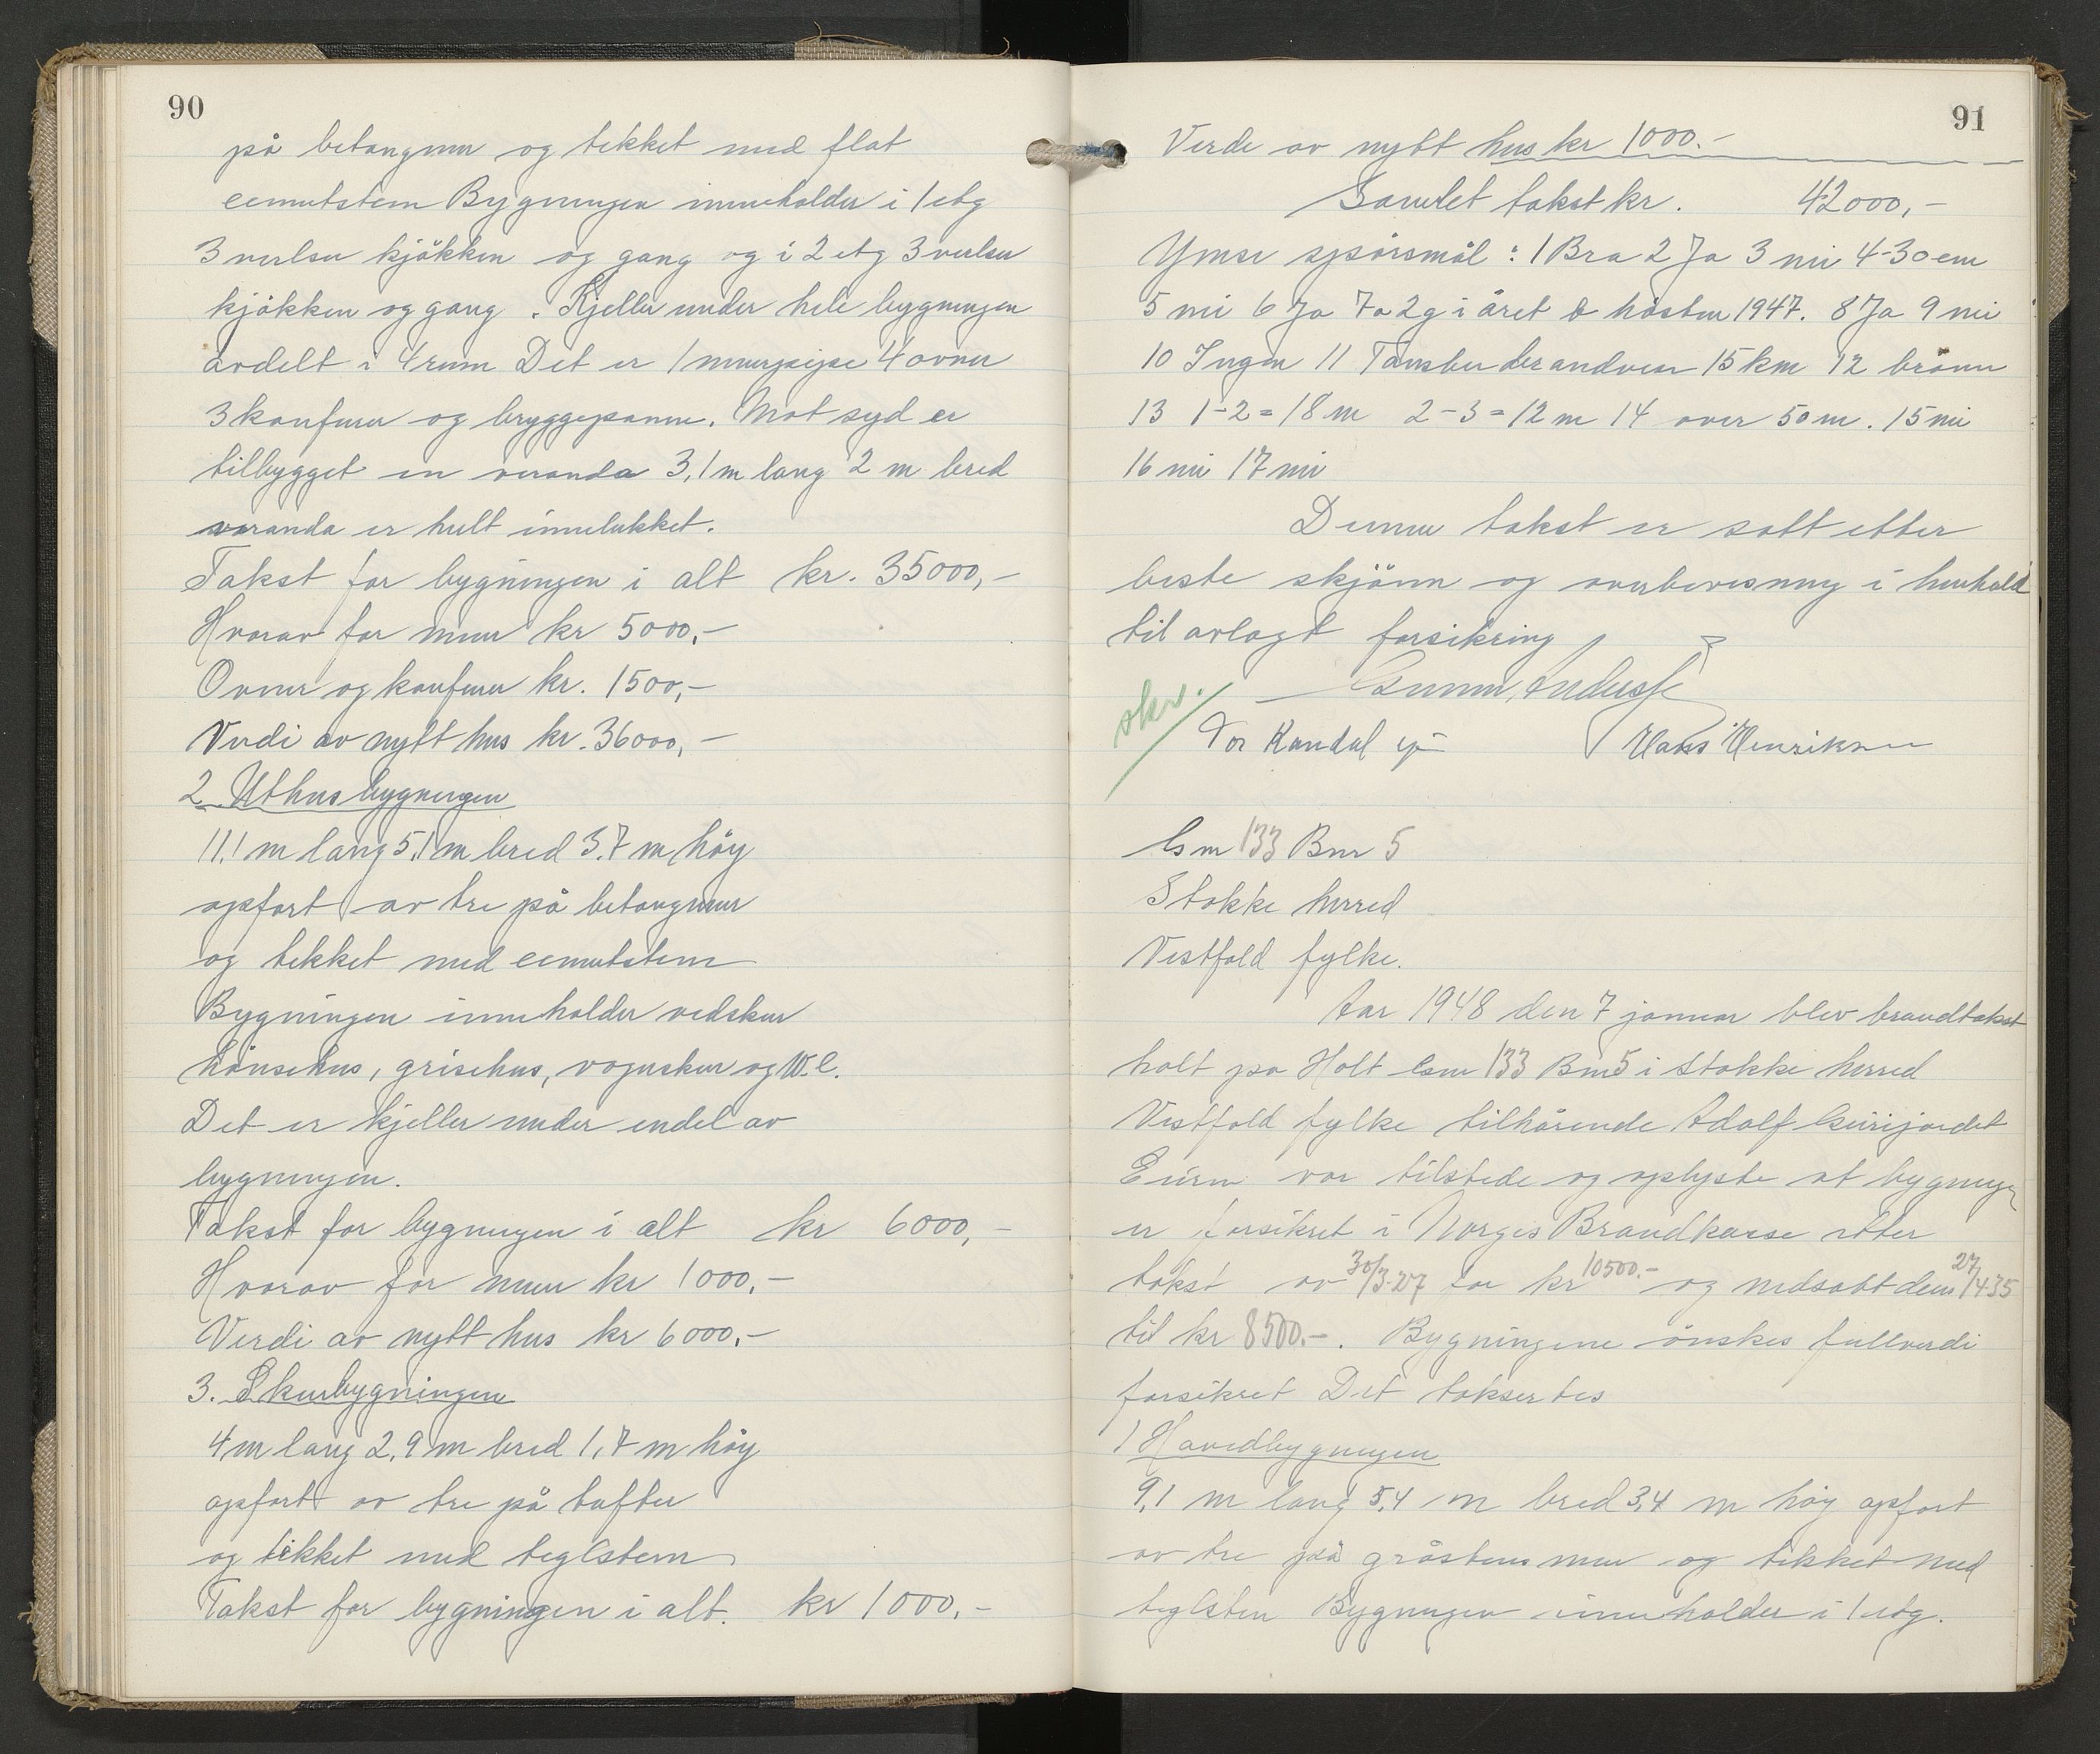 90
på betongmur og tekket med flat
cementsten Bygningen inneholder i 1 etg
3 verelser kjökken og gang og i 2 etg 3 verelser
kjökken og gang. Kjeller under hele bygningen
avdelt i 4 rum Det er 1 murpipe 4 ovner
3 konfurer og bryggepanne. Mot syd er
tilbygget en veranda 3,1 m lang 2 m bred
veranda er helt innelukket.
Takst for bygningen i alt kr. 35000,-
Hvorav for mur kr 5000,-
Ovner og konfurer kr. 1500,-
Verdi av nytt hus kr. 36000,-
2 Uthusbygningen
11,1 m lang 5,1 m bred 3,7 m höy
opfort av tre på betongmur
og tekket med cementsten
Bygningen inneholder vedskur
hönsehus, grisehus, vognskur og W.C.
Det er kjeller under endel av
bygningen.
Takst for bygningen i alt kr 6000,-
Hvorav for mur kr 1000,-
Verdi av nytt hus kr 6000,-
3. Skurbygningen
4 m lang 2,9 m bred 1,7 m höy
opfort av tre på tufter
og tekket med teglsten
Takst for bygningen i alt. kr 1000,-
91
Verde av nytt hus kr 1000.-
Samlet takst kr. 42000,-
Ymse spörsmål: 1 Bra 2 Ja 3 nei 4-30 cm
5 nei 6 Ja 7 a 2 g i året b hösten 1947. 8 Ja 9 nei
10 Ingen 11 Tønsber brandvesen 15 km 12 brönn
13 1-2 = 18 m 2-3 = 12 m 14 over 50 m. 15 nei
16 nei 17 nei
Denne takst er satt etter
beste skjönn og overbevisning i henhold
til avlagt forsikring
skr.
Tor Kandal Hans Henriksen
Gnr 133 Bnr 5
Stokke herred
Vestfold fylke.
Aar 1948 den 7 januar blev brandtakst
holt på Holt Gnr 133 Bnr 5 i Stokke herred
Vestfold fylke tilhörende Adolf
Eieren var tilstede og oplyste at bygningen
er forsikret i Norges Brandkasse etter
takst av 30/3-27 for kr 10500.- og nedsatt den 27/4 35
til kr 8500.-. Bygningene önskes fullverdi
forsikret Det taksertes
1 Hovedbygningen
9,1 m lang 5,4 m bred 3,4 m höy opfort
av tre på gråstens mur og tekket med
teglsten Bygningen inneholder i 1 etg.